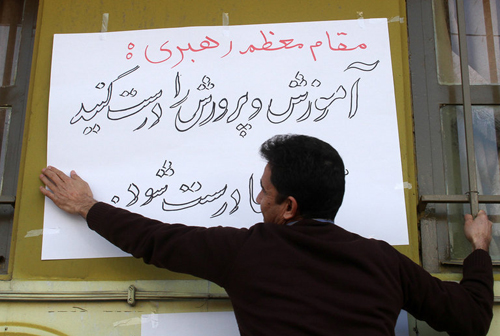 مقام معظم رهبری :
آموزش و پرورش را درست کنید
درست شود.